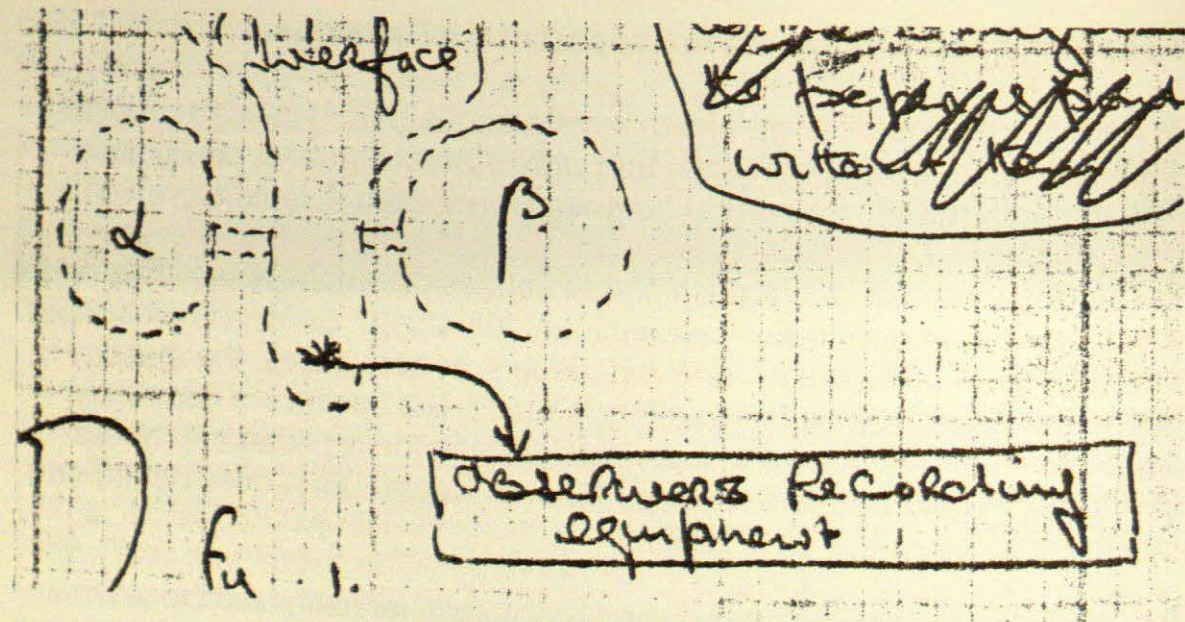 (Interface)
α
β
without
Observers Recording
equipment
1.